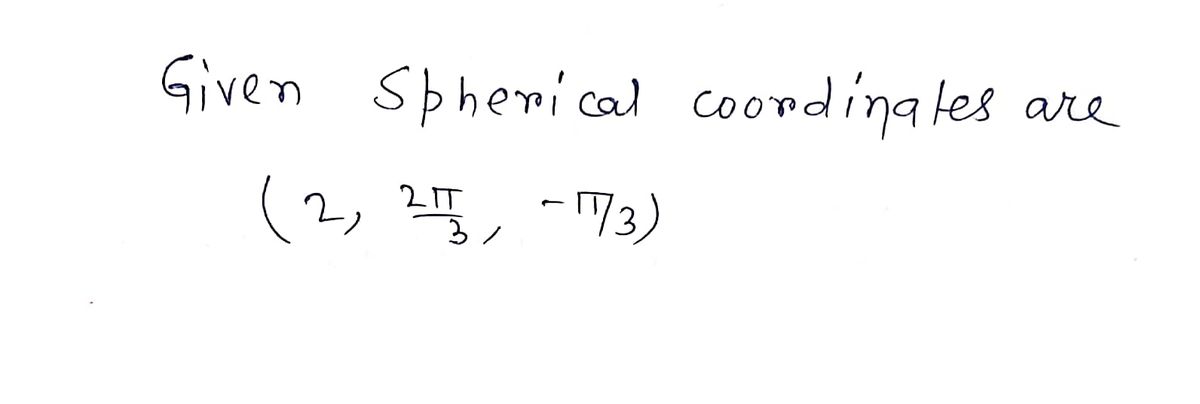 Given Spherical coordinates are
(2, 2π/3, -π/3)